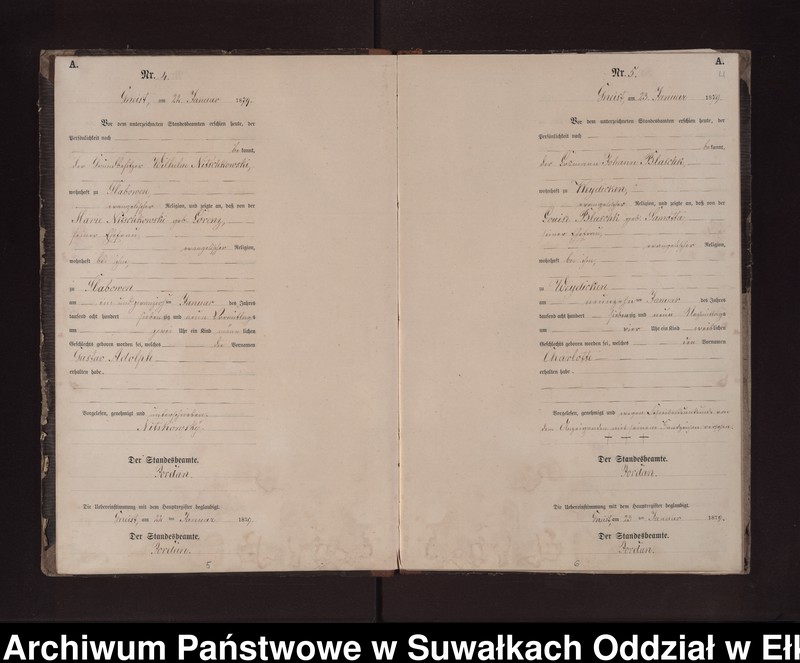 A.
Nr. 4.
am 22. Januar 1879.
Vor dem unterzeichneten Standesbeamten erschien heute, der
Persönlichkeit nach
bekannt,
der Grundbesitzer Wilhelm Nitschkowski,
wohnhaft zu Flabowen,
evangelischer Religion, und zeigte an, daß von der
Marie Nitschkowski geb. Lorenz,
seiner Ehefrau,
evangelischer Religion,
wohnhaft bei ihm,
zu Flabowen
am ein und zwanzigsten Januar des Jahres
tausend acht hundert siebenzig und neun Vormittags
um Uhr ein Kind männlichen
Geschlechts geboren worden sei, welches die Vornamen
Gustav Adolph
erhalten habe.
Vorgelesen, genehmigt und unterschrieben
Nitschkowski.
Der Standesbeamte.
Jordan.
Die Uebereinstimmung mit dem Hauptregister beglaubigt.
am 22 ten Januar 1879.
Der Standesbeamte.
Jordan.
5
A.
Nr. 5.
am 23. Januar 1879.
Vor dem unterzeichneten Standesbeamten erschien heute, der
Persönlichkeit nach
bekannt,
der Losmann Johann Blaschk,
wohnhaft zu Weydicken,
evangelischer Religion, und zeigte an, daß von der
Louise Blaschk geb.
seiner Ehefrau,
evangelischer Religion,
wohnhaft bei ihm,
zu Weydicken
am neunzehnten Januar des Jahres
tausend acht hundert siebenzig und neun Nachmittags
um vier Uhr ein Kind weiblichen
Geschlechts geboren worden sei, welches den Vornamen
Charlotte
erhalten habe.
Vorgelesen, genehmigt und wegen Schreibensunkunde von
dem Anzeigenden mit seinem Handzeichen versehen.
+ + +
Der Standesbeamte.
Jordan.
Die Uebereinstimmung mit dem Hauptregister beglaubigt.
am 23 ten Januar 1879.
Der Standesbeamte.
Jordan.
6
Archiwum Państwowe w Suwałkach Oddział w Ełk